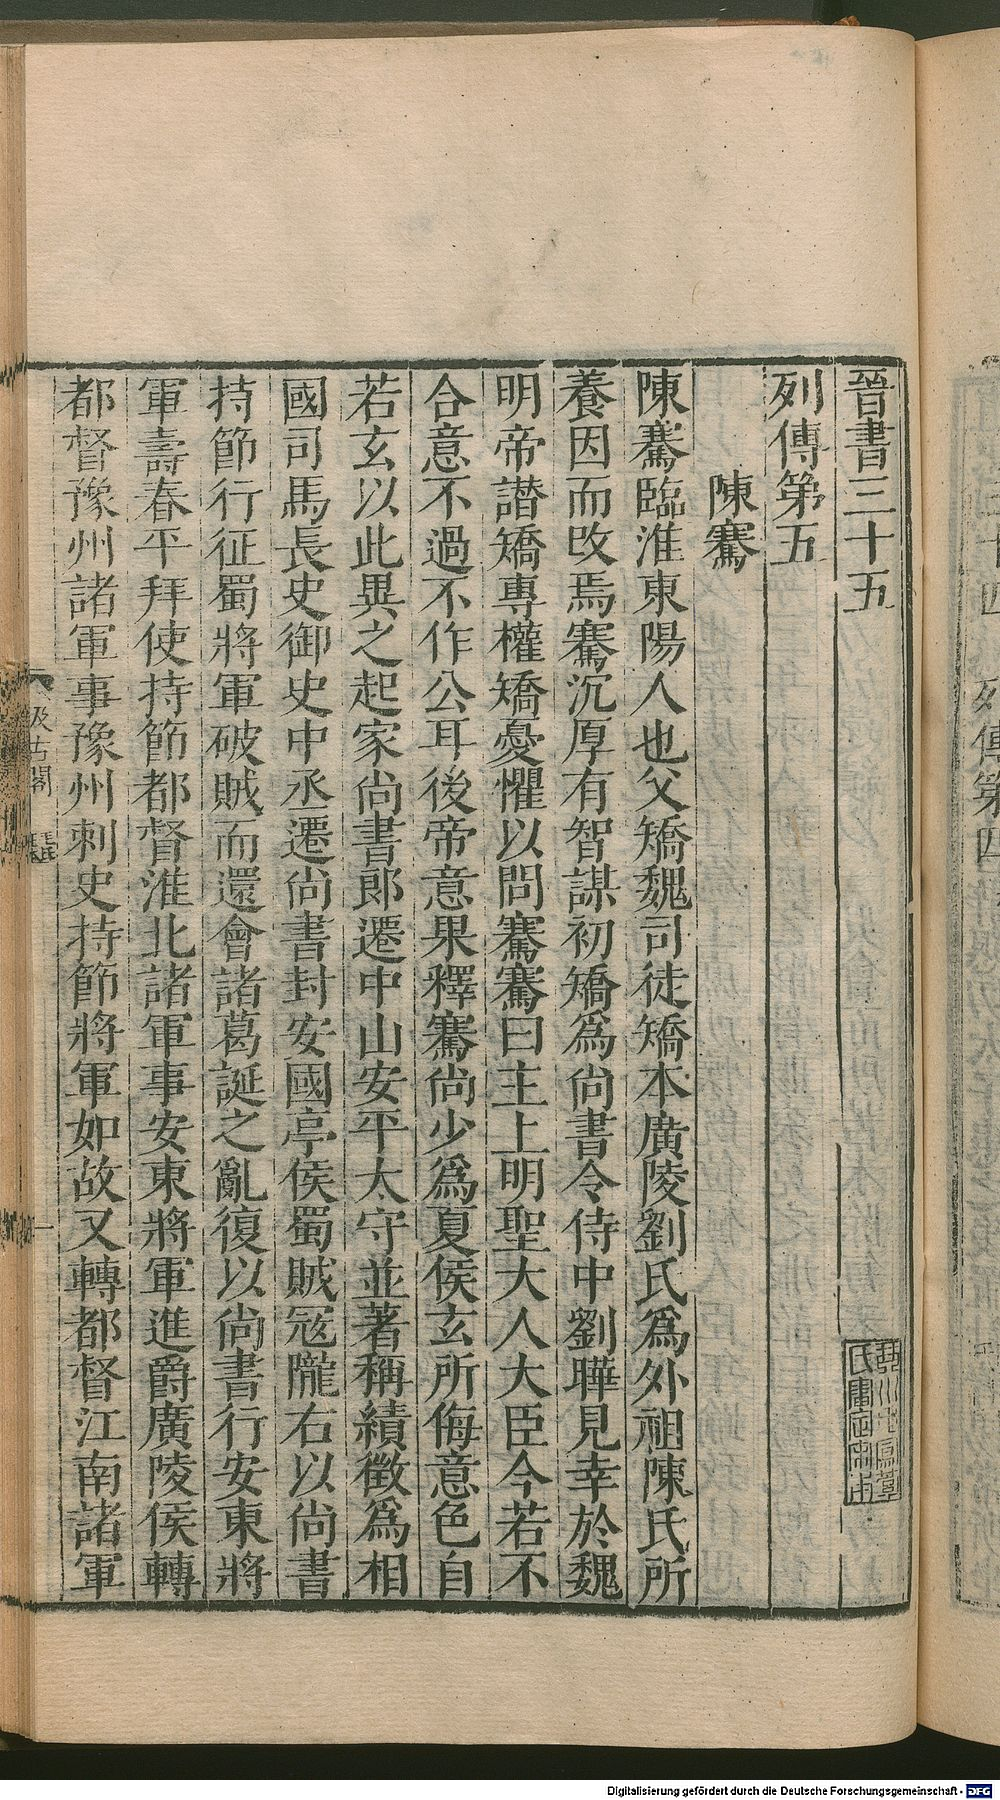 晉書三十五
列傳第五
陳騫
陳騫臨淮東陽人也父矯魏司徒矯本廣陵劉氏爲外祖陳氏所
養因而改焉騫沉厚有智謀初矯爲尚書令侍中劉曄見幸於魏
明帝譖矯專權矯憂懼以問騫騫曰主上明聖大人大臣今若不
合意不過不作公耳後帝意果釋騫尚少爲夏侯玄所侮意色自
若玄以此異之起家尚書郎遷中山安平太守並著稱績徵爲相
國司馬長史御史中丞遷尚書封安國亭侯蜀賊冦隴右以尚書
持節行征蜀將軍破賊而還會諸葛誕之亂復以尚書行安東將
軍壽春平拜使持節都督淮北諸軍事安東將軍進爵廣陵侯轉
都督豫州諸軍事豫州刺史持節將軍如故又轉都督江南諸軍
汲古閣
列傳第四
Digitalisierung gefördert durch die Deutsche Forschungsgemeinschaft - DFG